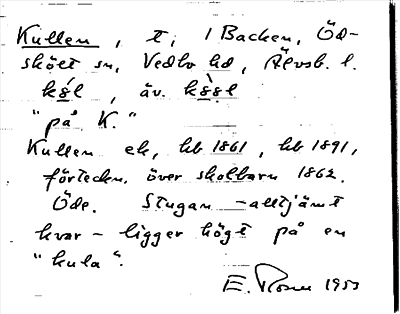 Kullen, t; 1 Backen, Öd-
skölt sn, Vedbo hd, Älvsb. l.
kɞ́l, äv. kɞ̀ɞl
"på K."
Kullen ek, hb 1861, hb 1891,
förteckn. över skolbarn 1862.
Öde. Stugan - alltjämt
kvar - ligger högt på en
"kula".
E. 1953